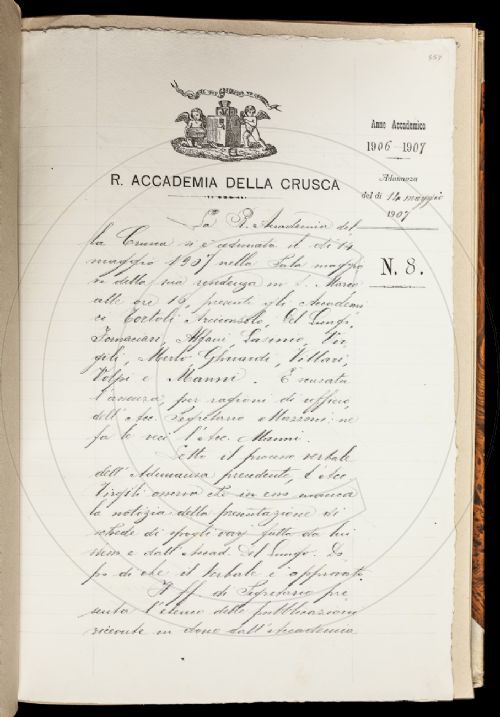 R. ACCADEMIA DELLA CRUSCA
Anno Accademico
1906-1907
Adunanza
del dì 14 maggio
1907
N. 8.
La R. Accademia del
la Crusca si è adunata il dì 14
maggio 1907 nella Sala maggio
re della sua residenza in S. Marco
alle ore 16, presenti gli Accademi
ci Tortoli Arciconsolo, Del Lungo,
Fornaciari, Alfani, Vir
gili, Merlo, Ghirardi, Villari,
Volpi e Manni. È scusata
l'assenza, per ragioni di ufficio,
dell'Acc. Segretario Mazzoni: ne
fa le veci l'Acc. Manni.
Letto il processo verbale
dell'Adunanza precedente, l'Acc.
Virgili osserva che in esso manca
la notizia della presentazione di
schede di spogli varj fatta da lui
stesso e dall'Accad. Del Lungo. Do
po di che il Verbale è approvato.
Il ff. di Segretario pre
senta l'elenco delle pubblicazioni
ricevute in dono dall'Accademia